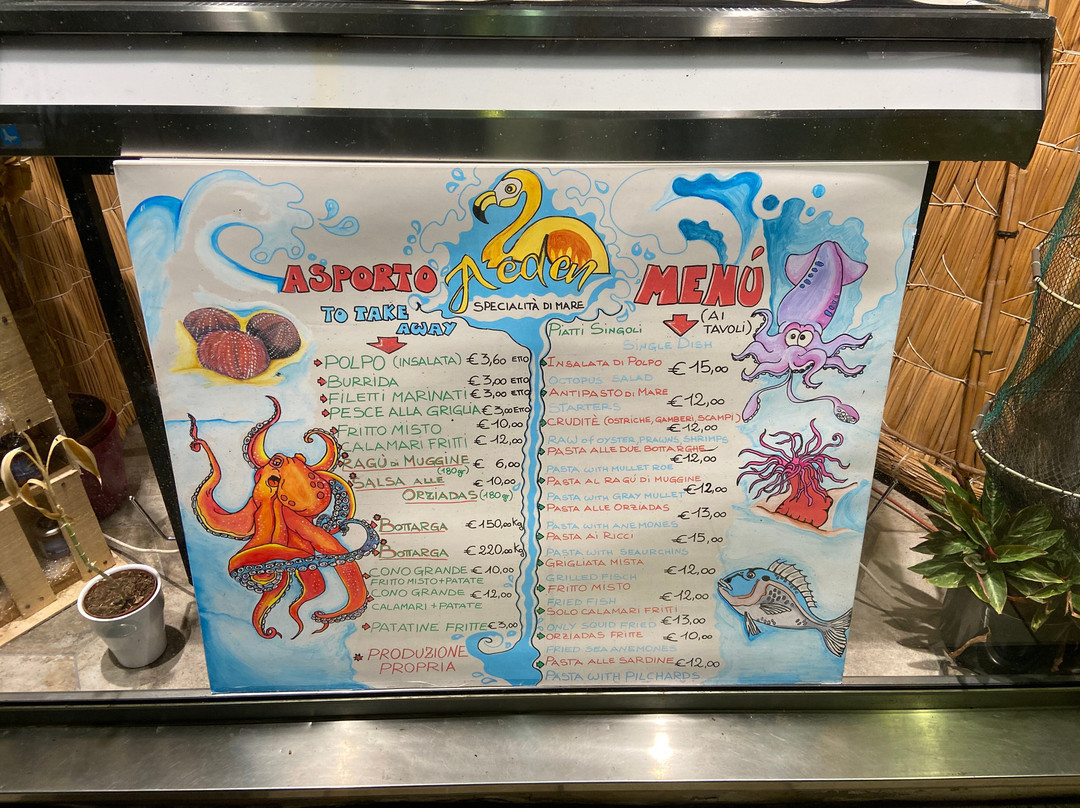 Aeden
SPECIALITÀ DI MARE
ASPORTO
TO TAKE
AWAY
POLPO (INSALATA) € 3,60 ETTO
BURRIDA € 3,00 ETTO
FILETTI MARINATI € 3,00 ETTO
PESCE ALLA GRIGLIA € 3,00 ETTO
FRITTO MISTO € 10,00
CALAMARI FRITTI € 12,00
RAGÙ DI MUGGINE € 6,00
(180gr)
SALSA ALLE € 10,00
ORZIADAS (180gr)
BOTTARGA € 150,00 KG
BOTTARGA € 220,00 KG
CONO GRANDE € 10,00
FRITTO MISTO + PATATE
CONO GRANDE € 12,00
CALAMARI + PATATE
PATATINE FRITTE € 3,00
PRODUZIONE
PROPRIA
MENÚ
(AI
TAVOLI)
PIATTI SINGOLI
SINGLE DISH
INSALATA DI POLPO € 15,00
OCTOPUS SALAD
ANTIPASTO DI MARE € 12,00
STARTERS
CRUDITÈ (OSTRICHE, GAMBERI, SCAMPI)
€ 12,00
RAW OF OYSTER, PRAWNS, SHRIMPS
PASTA ALLE DUE BOTTARGHE
€ 12,00
PASTA WITH MULLET ROE
PASTA AL RAGÙ DI MUGGINE
€ 12,00
PASTA WITH GRAY MULLET
PASTA ALLE ORZIADAS € 13,00
PASTA WITH ANEMONES
PASTA AI RICCI € 15,00
PASTA WITH SEAURCHINS
GRIGLIATA MISTA € 12,00
GRILLED FISCH
FRITTO MISTO € 12,00
FRIED FISH
SOLO CALAMARI FRITTI
€ 13,00
ONLY SQUID FRIED
ORZIADAS FRITTE € 10,00
FRIED SEA ANEMONES
PASTA ALLE SARDINE € 12,00
PASTA WITH PILCHARDS